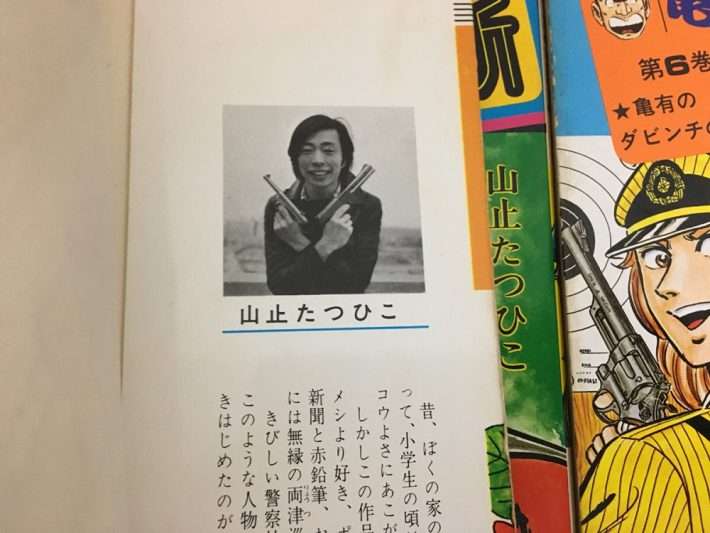 山止たつひこ
昔、ぼくの家の
って、小学生の頃
コウよさにあこが
しかしこの作品
メシより好き、
新聞と赤鉛筆、
には無縁の両津巡
きびしい警察
このような人物
きはじめたのが
山止たつひこ
第6巻
★亀有の
ダビンチの